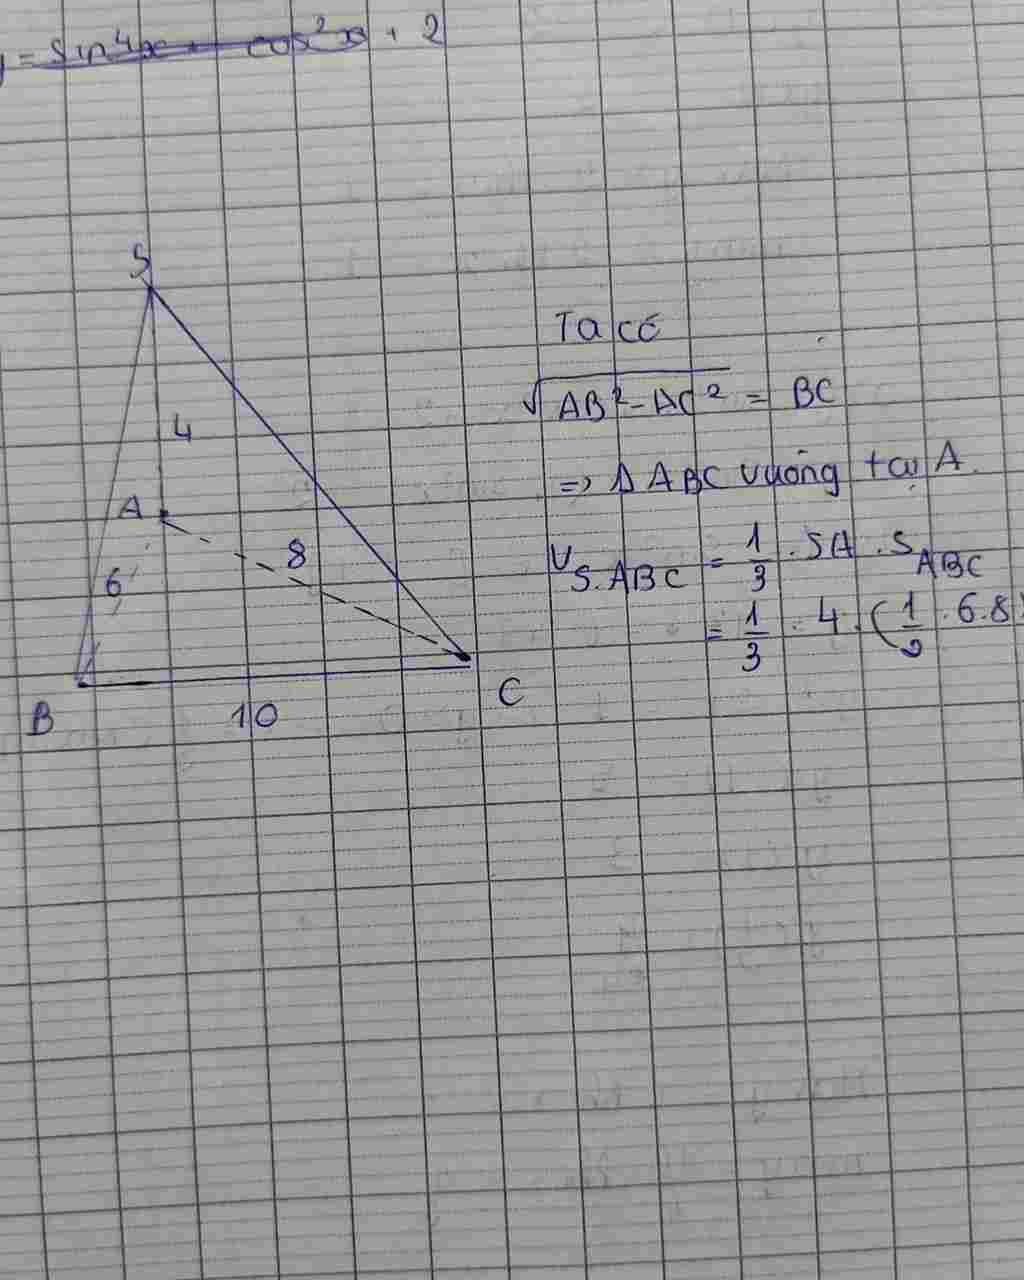 y = sin⁴x + cos²x + 2
S
4
A
8
6
B
10
C
Ta có
√AB² - AC² = BC
=> Δ ABC vuông tại A.
V S.ABC = 1/3 . SA . S ABC
= 1/3 . 4 . (1/2 . 6.8)